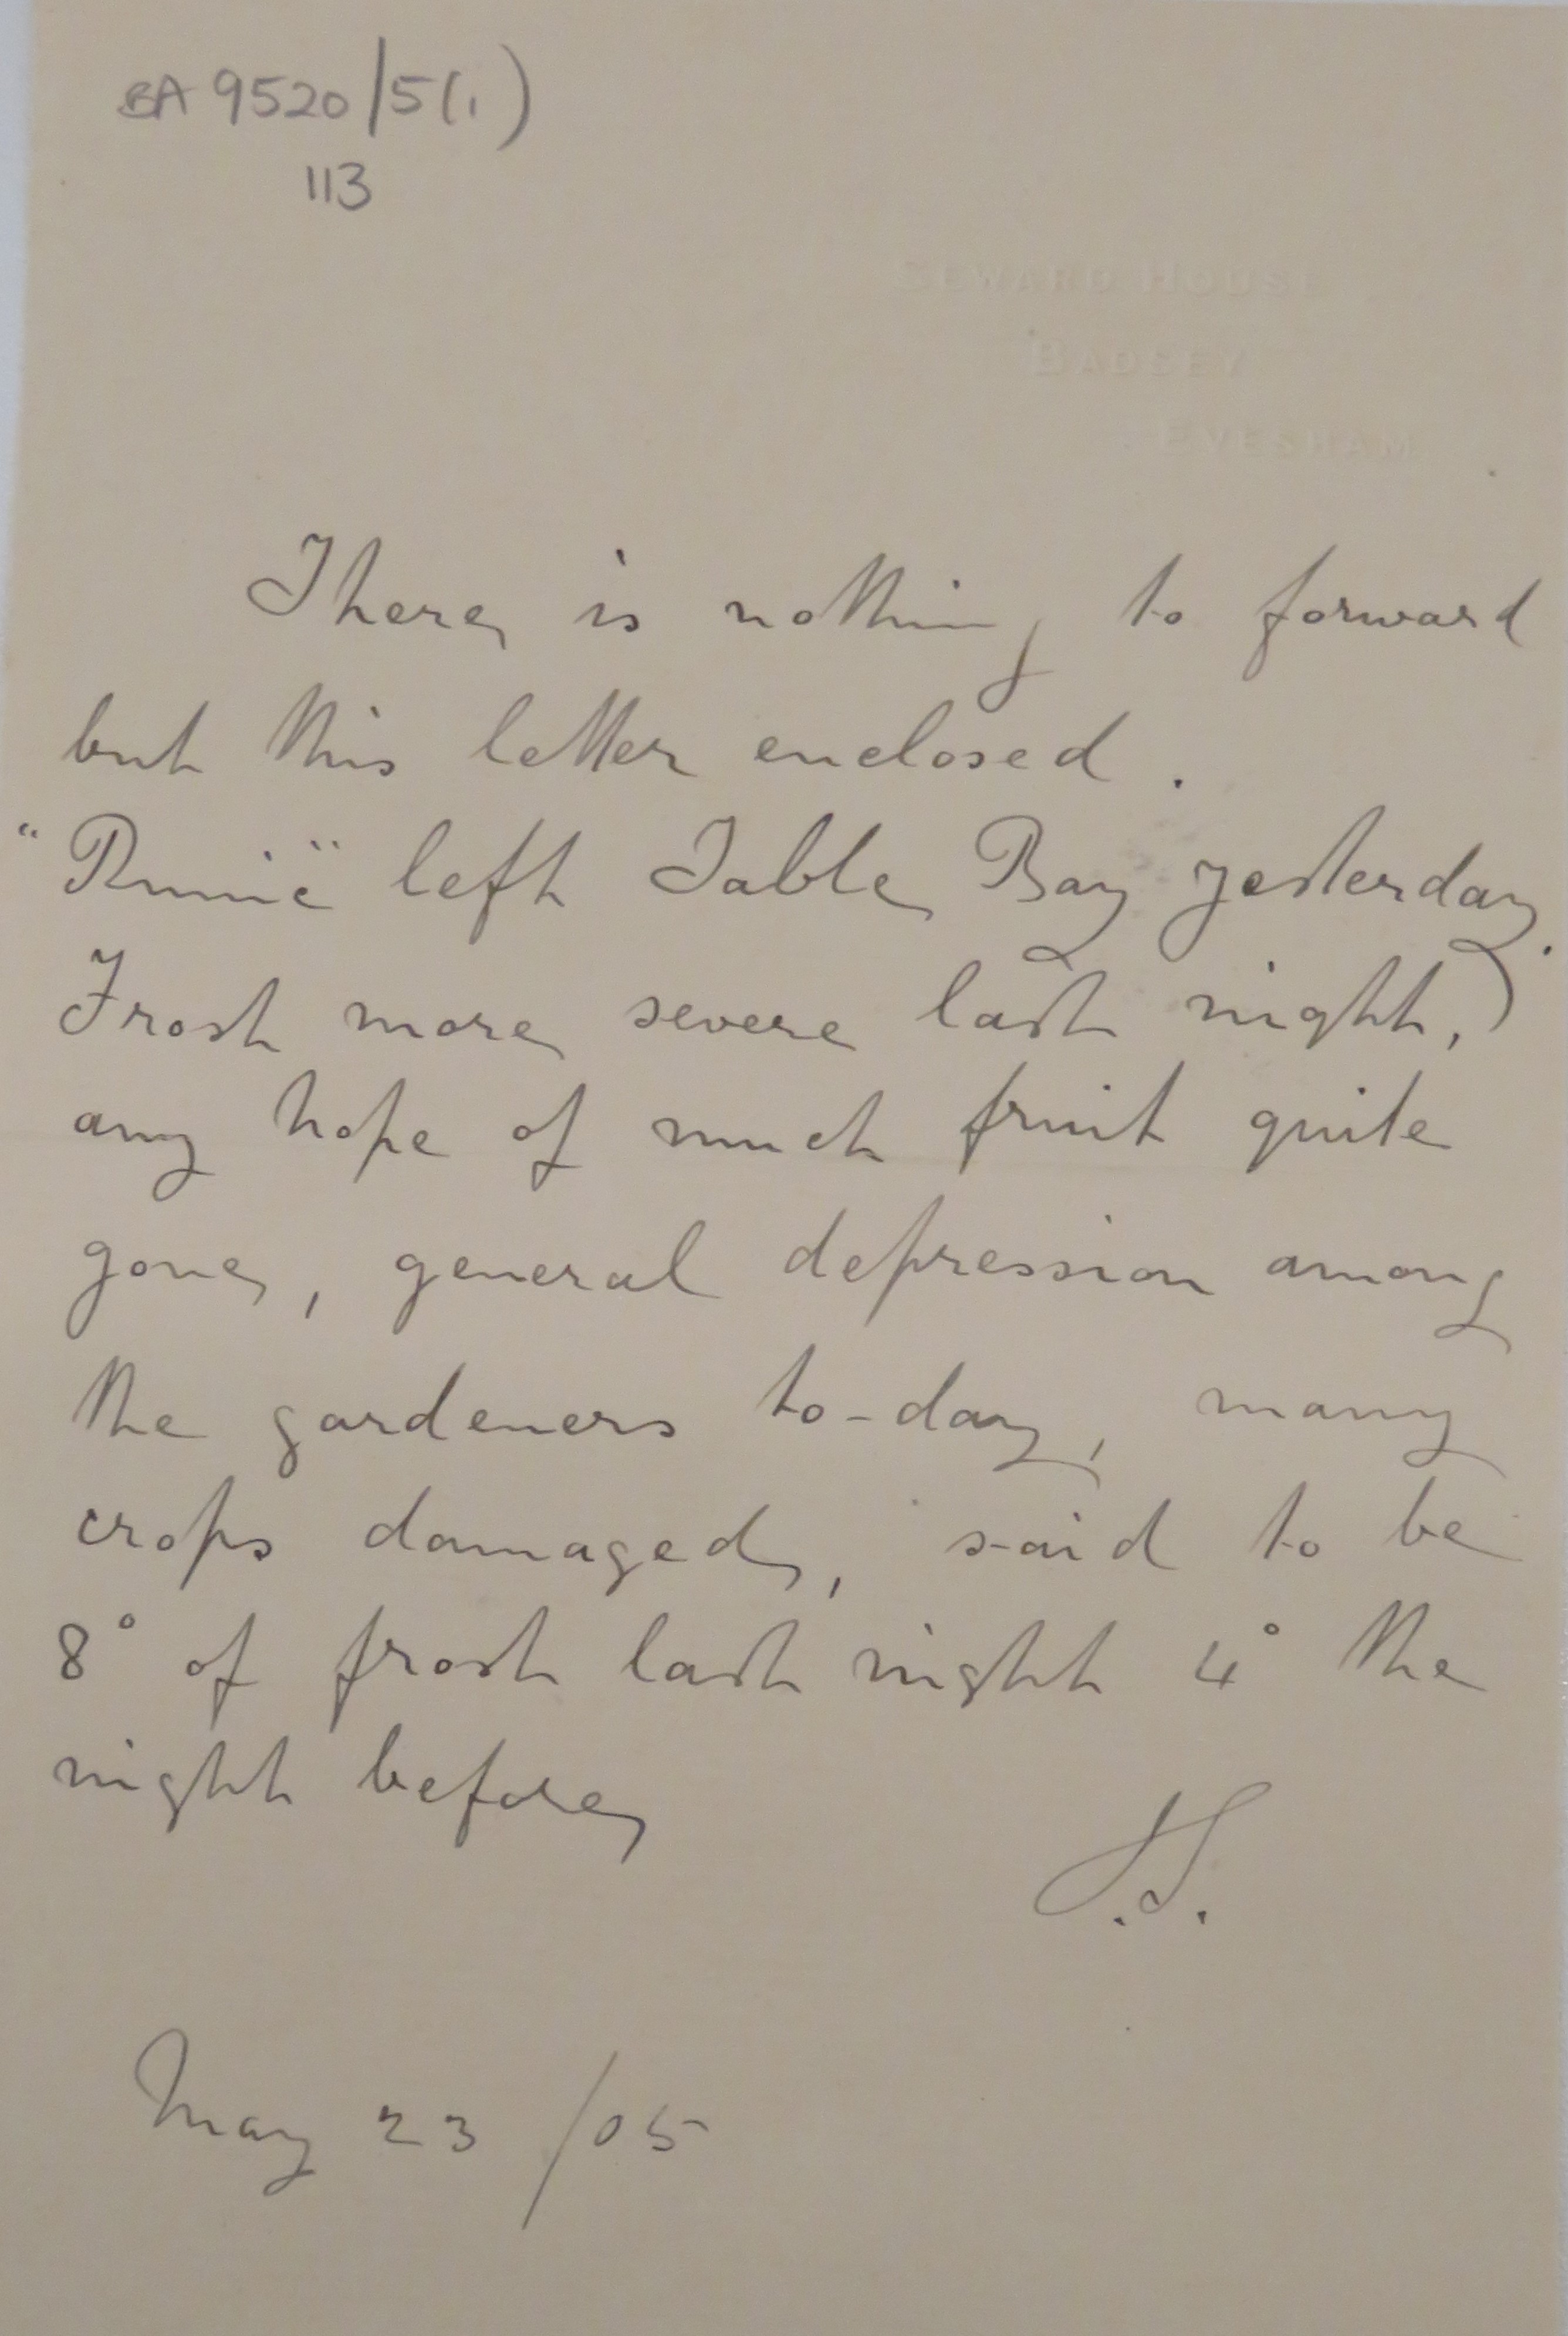 BA 9520/5(1)
113
SEWARD HOUSE
BADSEY
EVESHAM
There is nothing to forward
but this letter enclosed.
"Runic" left Table Bay yesterday.
Frost more severe last night,
any hope of much fruit quite
gone, general depression among
the gardeners to-day, many
crops damaged, said to be
8° of frost last night 4° the
night before
May 23/05